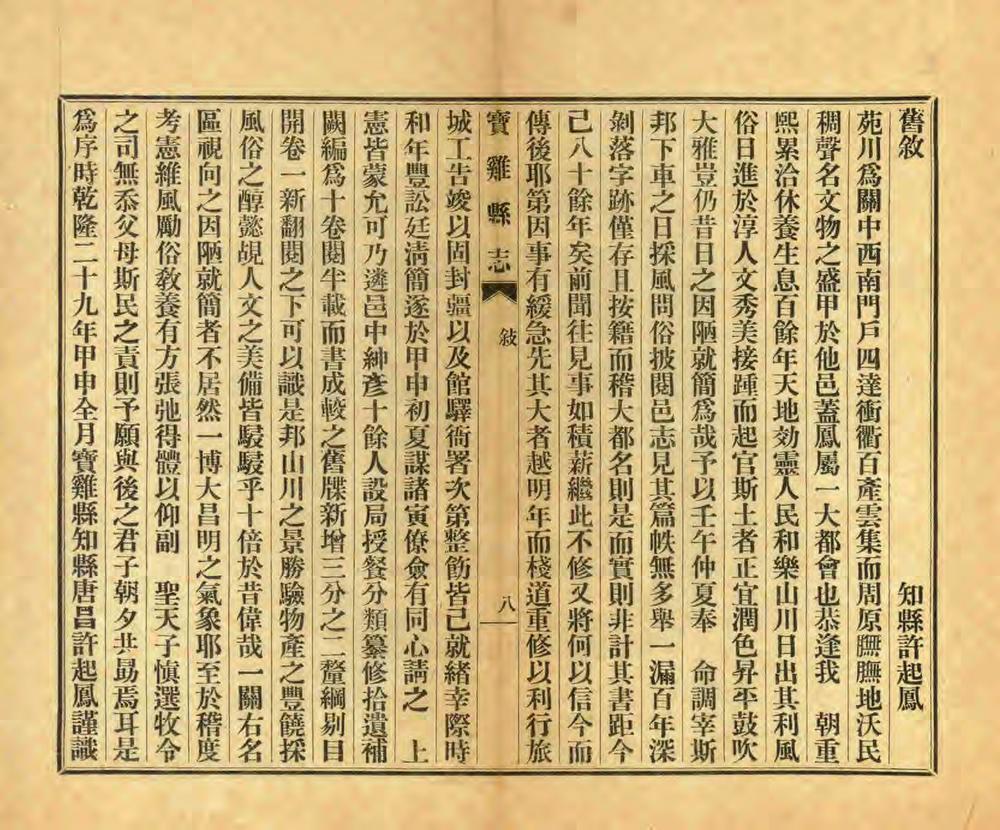 舊敘　知縣許起鳳
苑川爲關中西南門戶四達衝衢百產雲集而周原膴膴地沃民
稠聲名文物之盛甲於他邑蓋鳳屬一大都會也恭逢我　朝重
熙累洽休養生息百餘年天地効靈人民和樂山川日出其利風
俗日進於淳人文秀美接踵而起官斯土者正宜潤色昇平鼓吹
大雅豈仍昔日之因陋就簡爲哉予以壬午仲夏奉　命調宰斯
邦下車之日採風問俗披閱邑志見其篇帙無多舉一漏百年深
剝落字跡僅存且按籍而稽大都名則是而實則非計其書距今
己八十餘年矣前聞往見事如積薪繼此不修又將何以信今而
傳後耶第因事有緩急先其大者越明年而棧道重修以利行旅
寶雞縣志　敘　八
城工告竣以固封疆以及館驛衙署次第整飭皆己就緒幸際時
和年豐訟廷淸簡遂於甲申初夏謀諸寅僚僉有同心請之　上
憲皆蒙允可乃遴邑中紳彥十餘人設局授餐分類纂修拾遺補
闕編爲十卷閱半載而書成較之舊牒新增三分之二釐綱剔目
開卷一新翻閱之下可以識是邦山川之景勝驗物產之豐饒採
風俗之醇懿覘人文之美備皆駸駸乎十倍於昔偉哉一關右名
區視向之因陋就簡者不居然一博大昌明之氣象耶至於稽度
考憲維風勵俗敎養有方張弛得體以仰副　聖天子愼選牧令
之司無忝父母斯民之責則予願與後之君子朝夕共勗焉耳是
爲序時乾隆二十九年甲申仝月寶雞縣知縣唐昌許起鳳謹識